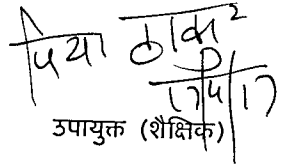 पिया ठाकुर
17/5/17
उपायुक्त (शैक्षिक)